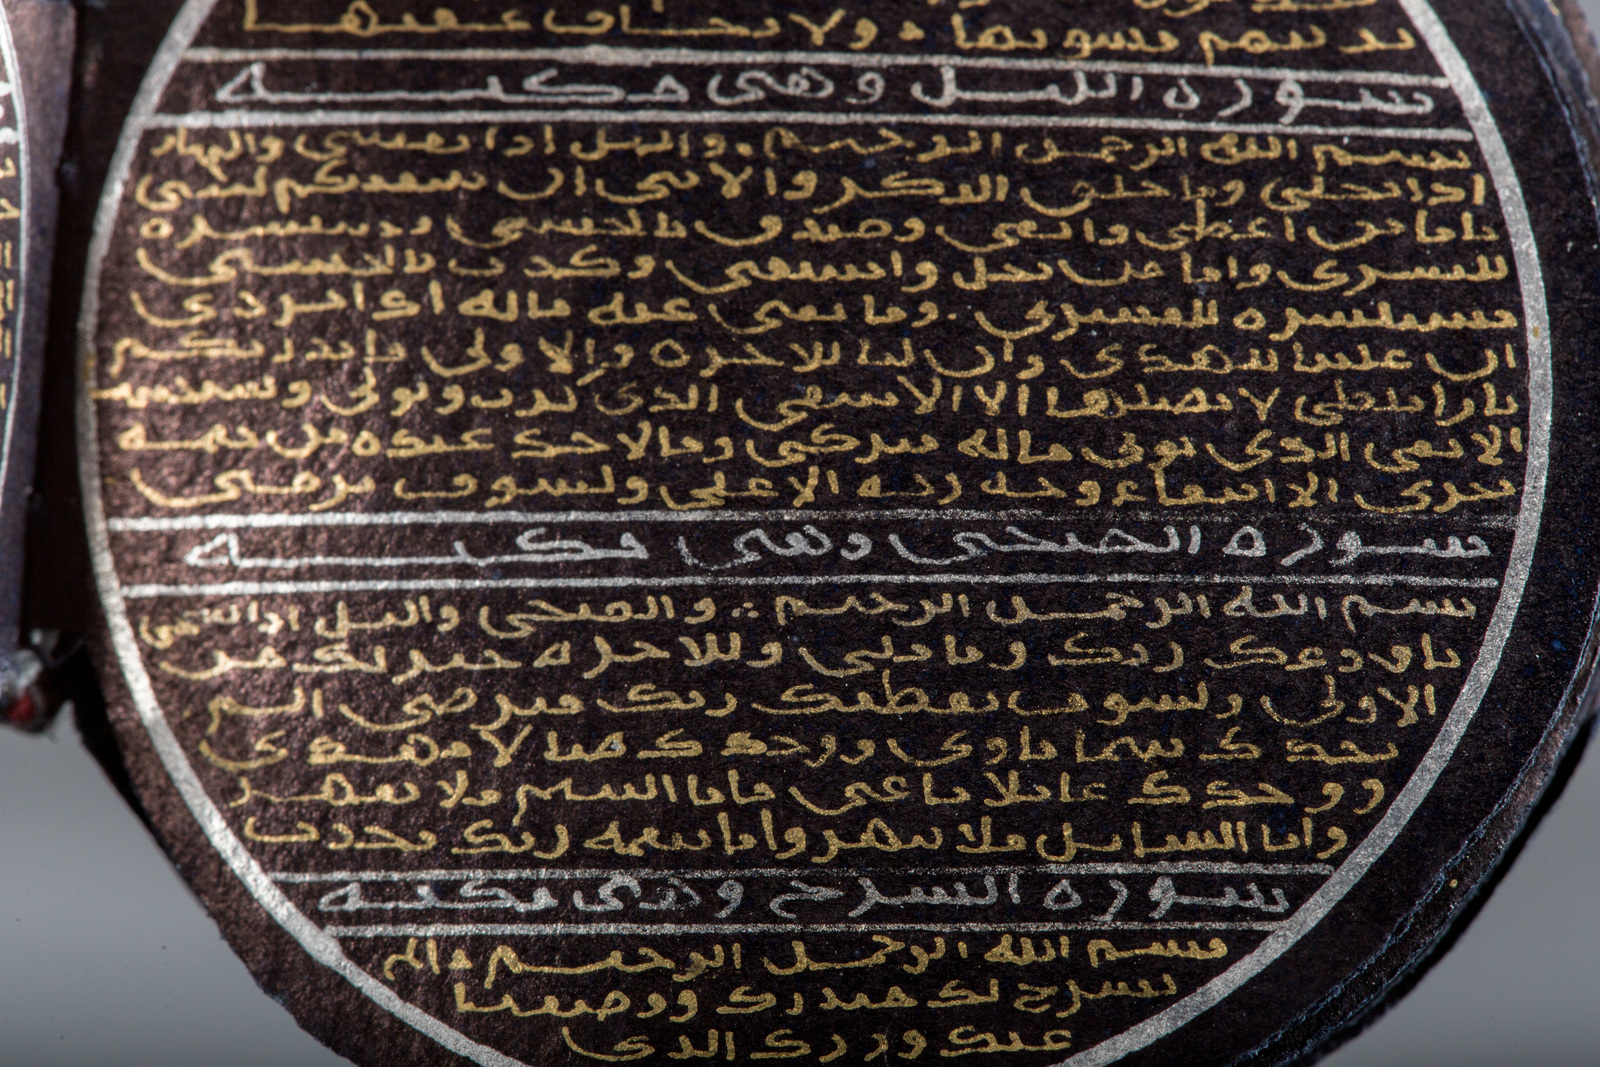 بذنبهم فسويها ولا يخاف عقبيها
سورة الليل وهى مكية
بسم الله الرحمن الرحيم والليل اذا يغشى والنهار
اذا تجلى وما خلق الذكر والانثى ان سعيكم لشتى
فاما من اعطى واتقى وصدق بالحسنى فسنيسره
لليسرى واما من بخل واستغنى وكذب بالحسنى
فسنيسره للعسرى وما يغنى عنه ماله اذا تردى
ان علينا للهدى وان لنا للاخرة والاولى فانذرتكم
نارا تلظى لا يصليها الا الاشقى الذى كذب وتولى وسيجنبها
الاتقى الذى يوتى ماله يتزكى وما لاحد عنده من نعمة
تجزى الا ابتغاء وجه ربه الاعلى ولسوف يرضى
سورة الضحى وهى مكية
بسم الله الرحمن الرحيم والضحى والليل اذا سجى
ما ودعك ربك وما قلى وللاخرة خير لك من
الاولى ولسوف يعطيك ربك فترضى الم
يجدك يتيما فاوى ووجدك ضالا فهدى
ووجدك عائلا فاغنى فاما اليتيم فلا تقهر
واما السايل فلا تنهر واما بنعمة ربك فحدث
سورة الشرح وهى مكية
بسم الله الرحمن الرحيم الم
نشرح لك صدرك ووضعنا
عنك وزرك الذى